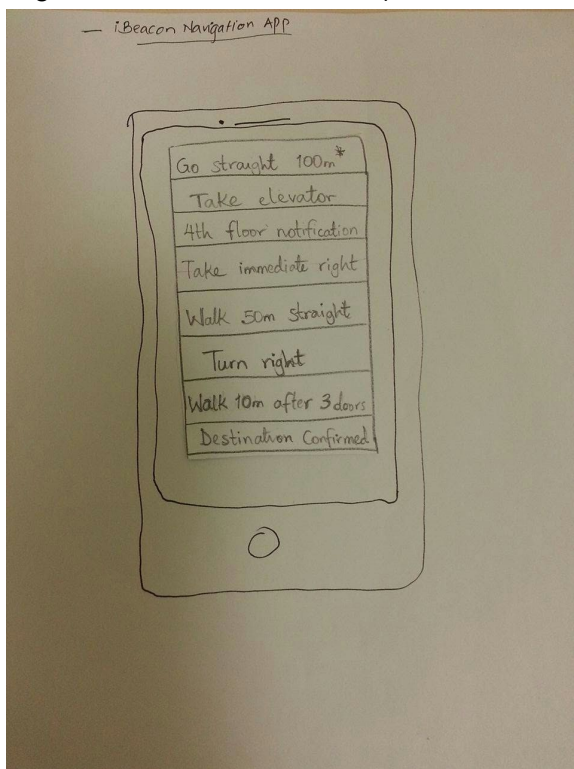 — iBeacon Navigation APP
Go straight 100m*
Take elevator
4th floor notification
Take immediate right
Walk 50m straight
Turn right
Walk 10m after 3 doors
Destination Confirmed